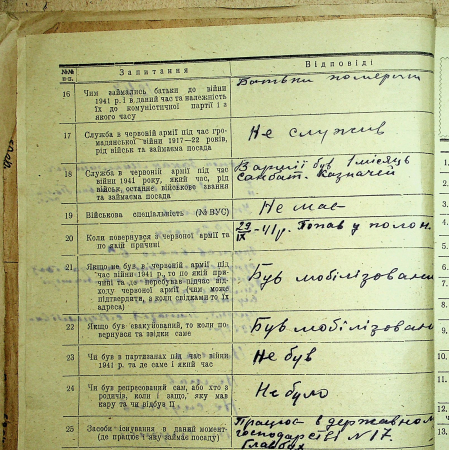 №№ п-п. Запитання Відповіді
16 Чим займались батьки до війни Батьки померли
1941 р. і в даний час та належність
їх до комуністичної партії і з
якого часу
17 Служба в червоній армії під час гро- Не служив
мадянської війни 1917—22 років,
рід військ та займаєма посада
18 Служба в червоній армії під час В армії був 1 місяць
війни 1941 року, який час, рід санбат. Казначей
військ, останнє військове звання
та займаєма посада
19 Військова спеціальність (№ ВУС) Не має
20 Коли повернувся з червоної армії та 29/IX-41 р. Попав у полон
по якій причині
21 Якщо не був в червоній армії під Був мобілізован
час війни 1941 р., то по якій при-
чині та де перебував підчас від-
ходу червоної армії (чим може
підтвердити, а коли свідками то їх
адреса)
22 Якщо був евакуйований, то коли по- Був мобілізован
вернувся та звідки саме
23 Чи був в партизанах під час війни Не був
1941 р. та де саме і який час
24 Чи був репресований сам, або хто з Не було
родичів, коли і защо, яку мав
кару та чи відбув її
25 Засоби існування в даний момент Працює в державном
(де працює і яку займає посаду) господарстві № 17.
Главбух
1.
2.
3.
4.
5.
6.
7.
8.
9.
10.
11.
12.
13.